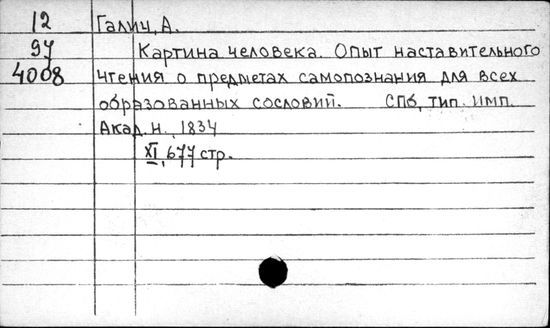 12 Галич, А.
97 Картина человека. Опыт наставительного
4008 чтения о предметах самопознания для всех
образованных сословий. СПб, тип. имп.
Акад. н., 1834
XI, 677 стр.